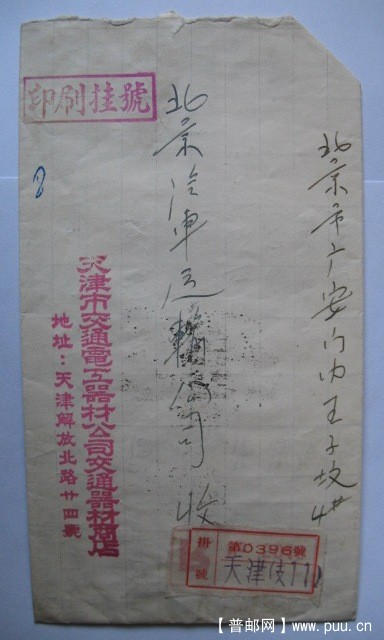 北京市广安门内王子坟4#
北京汽車运輸公司 收
印刷挂號
天津市交通電工器材公司交通器材商店
地址：天津解放北路廿四號
掛號
第0396號
天津
【普邮网】www.puu.cn